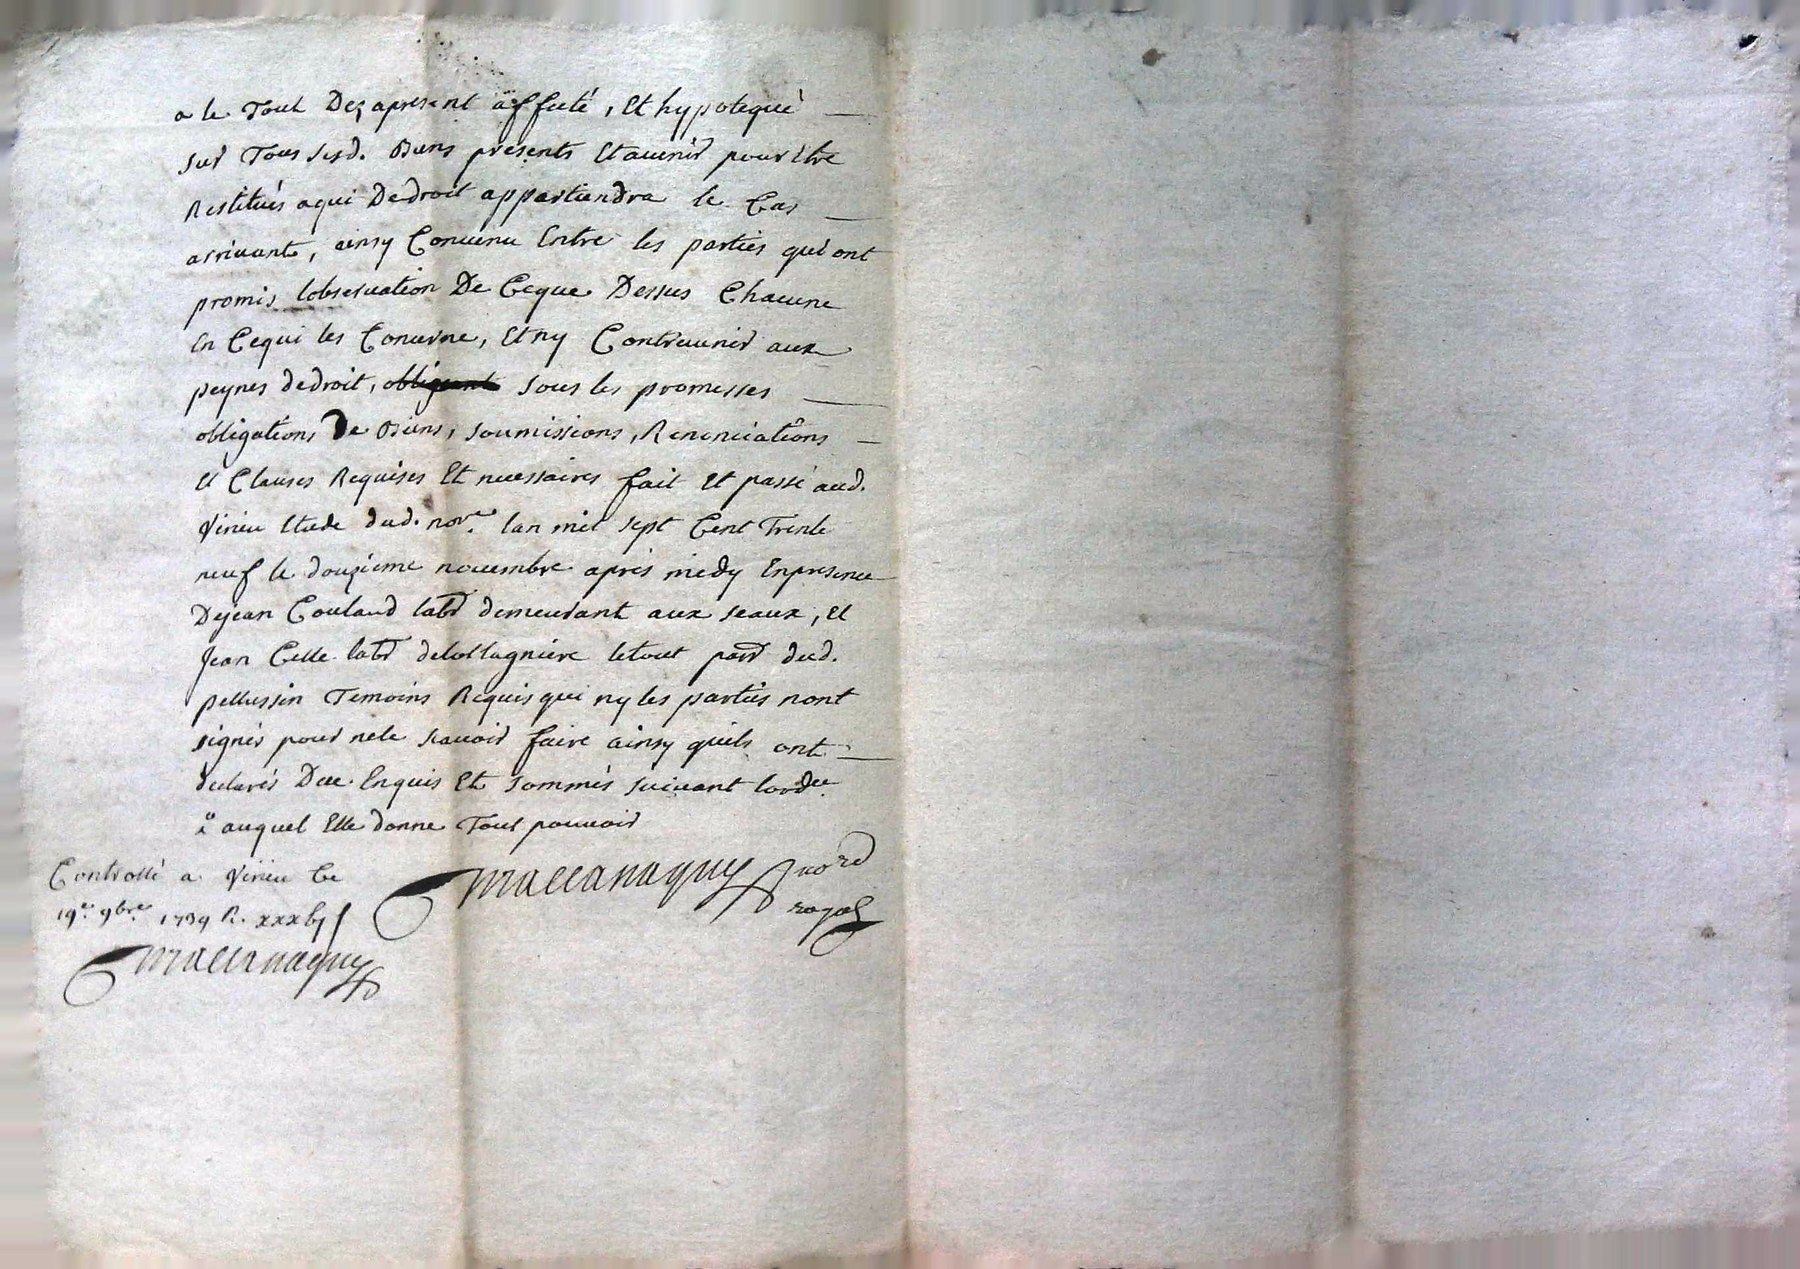 a le Tout Dez apresent affecté, Et hypotequé
sur Tous sesd. Biens presents Et avenir pour être
Restitués a qui De droit appartiendra le Cas
arrivant, ainsy Convenu Entre les parties qui ont
promis lobservation De Ceque Dessus Chacune
En Cequi les Concerne, Et ny Contrevenir aux
peynes de droit, obligeant sous les promesses
obligations De Biens, soumissions, Renonciations
Et Clauses Requises Et necessaires fait Et passé aud.
Virieu Etude dud. nore. lan mil sept Cent Trente
neuf le douzième novembre après midy Enpresence
De jean Couland labr demeurant aux seaux, Et
Jean Celle labr de le tout parr dud.
pellussin Temoins Requis qui ny les parties nont
signés pour ne le scavoir faire ainsy quils ont
declarés De ce Enquis Et sommés suivant lordce.
a auquel Elle donne Tout pouvoir
Controllé a Virieu Ce
19e. 9bre. 1739 R.
nore
royal